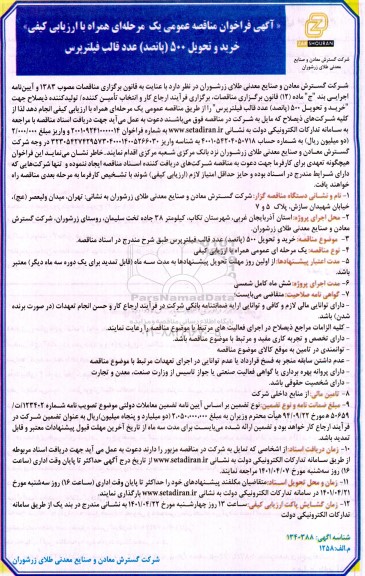 ZAR SHOURAN
شرکت گسترش معادن و صنایع
معدنی طلای زرشوران
«آگهی فراخوان مناقصه عمومی یک مرحله‌ای همراه با ارزیابی کیفی»
خرید و تحویل ۵۰۰ (پانصد) عدد قالب فیلترپرس
شرکت گسترش معادن و صنایع معدنی طلای زرشوران در نظر دارد با عنایت به قانون برگزاری مناقصات مصوب ۱۳۸۳ و آیین‌نامه
اجرایی بند "ج" ماده (۱۲) قانون برگزاری مناقصات، برگزاری فرآیند ارجاع کار و انتخاب تأمین کننده/ تولیدکننده ذیصلاح جهت
"خرید و تحویل ۵۰۰ (پانصد) عدد قالب فیلترپرس" را از طریق مناقصه عمومی یک مرحله‌ای همراه با ارزیابی کیفی انجام دهد لذا از
کلیه شرکت‌های ذیصلاح که مایل به شرکت در مناقصه فوق می‌باشند دعوت به عمل می آید جهت دریافت اسناد مناقصه با مراجعه
به سامانه تدارکات الکترونیکی دولت به نشانی www.setadiran.ir به شماره فراخوان و واریز مبلغ ۲/۰۰۰/۰۰۰
(دو میلیون ریال) به شماره حساب به شناسه واریز در وجه شرکت
گسترش معادن و صنایع معدنی طلای زرشوران نزد بانک مرکزی شعبه مرکزی اقدام نمایند. خاطر نشان می‌نماید این فراخوان
هیچگونه تعهدی برای کارفرما جهت دعوت به مناقصه شرکت‌های دریافت کننده اسناد مناقصه ایجاد ننموده و تنها شرکت‌هایی که
دارای شرایط مندرج در اسناد بوده و حایز حداقل امتیاز لازم (ارزیابی کیفی) شوند با تشخیص کارفرما به مرحله بعدی مناقصه راه
خواهند یافت.
۱- نام و نشانی دستگاه مناقصه گزار: شرکت گسترش معادن و صنایع معدنی طلای زرشوران به نشانی: تهران، میدان ولیعصر (عج)،
خیابان شهیدان سازش، پلاک ۵ و ۷
۲- محل اجرای پروژه: استان آذربایجان غربی، شهرستان تکاب، کیلومتر ۳۸ جاده تخت سلیمان، روستای زرشوران، شرکت گسترش
معادن و صنایع معدنی طلای زرشوران.
۳- موضوع مناقصه: خرید و تحویل ۵۰۰ (پانصد) عدد قالب فیلترپرس طبق شرح مندرج در اسناد مناقصه.
۴- نوع مناقصه: یک مرحله ای عمومی همراه با ارزیابی کیفی
۵- مدت اعتبار پیشنهادها: از اولین روز مهلت تحویل پیشنهادها به مدت سه ماه (قابل تمدید برای یک دوره سه ماه دیگر) معتبر
باشد.
۶- مدت اجرای پروژه: شش ماه کامل شمسی
۷- گواهی نامه صلاحیت: متقاضی می‌بایست:
- دارای توانایی مالی لازم و کافی و توانایی ارایه ضمانتنامه بانکی شرکت در فرآیند ارجاع کار و حسن انجام تعهدات (در صورت برنده
شدن) باشد.
- کلیه الزامات مراجع ذیصلاح در اجرای فعالیت های مرتبط با موضوع مناقصه را رعایت نمایند.
- دارای تخصص و تجربه کاری مفید و مرتبط با موضوع مناقصه باشد.
- توانمندی در تامین به موقع کالای موضوع مناقصه
- عدم داشتن سابقه منجر به فسخ قرارداد یا عدم توانایی در اجرای تعهدات مرتبط با موضوع مناقصه
- دارای پروانه بهره برداری یا گواهی فعالیت صنعتی یا جواز تاسیس از وزارت صنعت، معدن و تجارت
- دارای شخصیت حقوقی باشد.
۸- تامین مالی: از منابع داخلی شرکت
۹- مبلغ ضمانت نامه و نوع تضمین: نوع تضمین بر اساس آیین نامه تضمین معاملات دولتی موضوع تصویب نامه شماره ۱۲۳۴۰۲/ت
۵۰۶۵۹ ه مورخ ۹۴/۰۹/۲۲ هیأت محترم وزیران به مبلغ ۲.۰۵۰.۰۰۰.۰۰۰ (دو میلیارد و پنجاه میلیون) ریال به عنوان تضمین شرکت در
فرآیند ارجاع کار خواهد بود و تضمین ارائه شده می‌بایست برای مدت سه ماه از تاریخ آخرین مهلت قبول پیشنهادات معتبر و قابل
تمدید باشد.
۱۰- زمان دریافت اسناد: از اشخاصی که تمایل به شرکت در مناقصه مزبور را دارند دعوت به عمل می آید جهت دریافت اسناد مربوطه
از طریق سامانه تدارکات الکترونیکی دولت به نشانی www.setadiran.ir از تاریخ درج آگهی حداکثر تا پایان وقت اداری (ساعت
۱۶) روز سه‌شنبه مورخ ۱۴۰۱/۰۴/۰۷ مراجعه نمایند.
۱۱- زمان و محل تحویل اسناد: متقاضیان مکلفند پیشنهادهای خود را حداکثر تا پایان وقت اداری (ساعت ۱۶) روز سه‌شنبه مورخ
۱۴۰۱/۰۴/۲۱ در سامانه تدارکات الکترونیکی دولت به نشانی www.setadiran.ir بارگذاری نمایند.
۱۲- زمان گشایش پاکت ارزیابی کیفی: ساعت ۱۳ روز چهارشنبه مورخ ۱۴۰۱/۰۴/۲۲ به نشانی مندرج در بند یک از طریق سامانه
تدارکات الکترونیکی دولت
شناسه آگهی: ۱۳۴۰۳۸۸
م.الف: ۱۲۵۸
شرکت گسترش معادن و صنایع معدنی طلای زرشوران